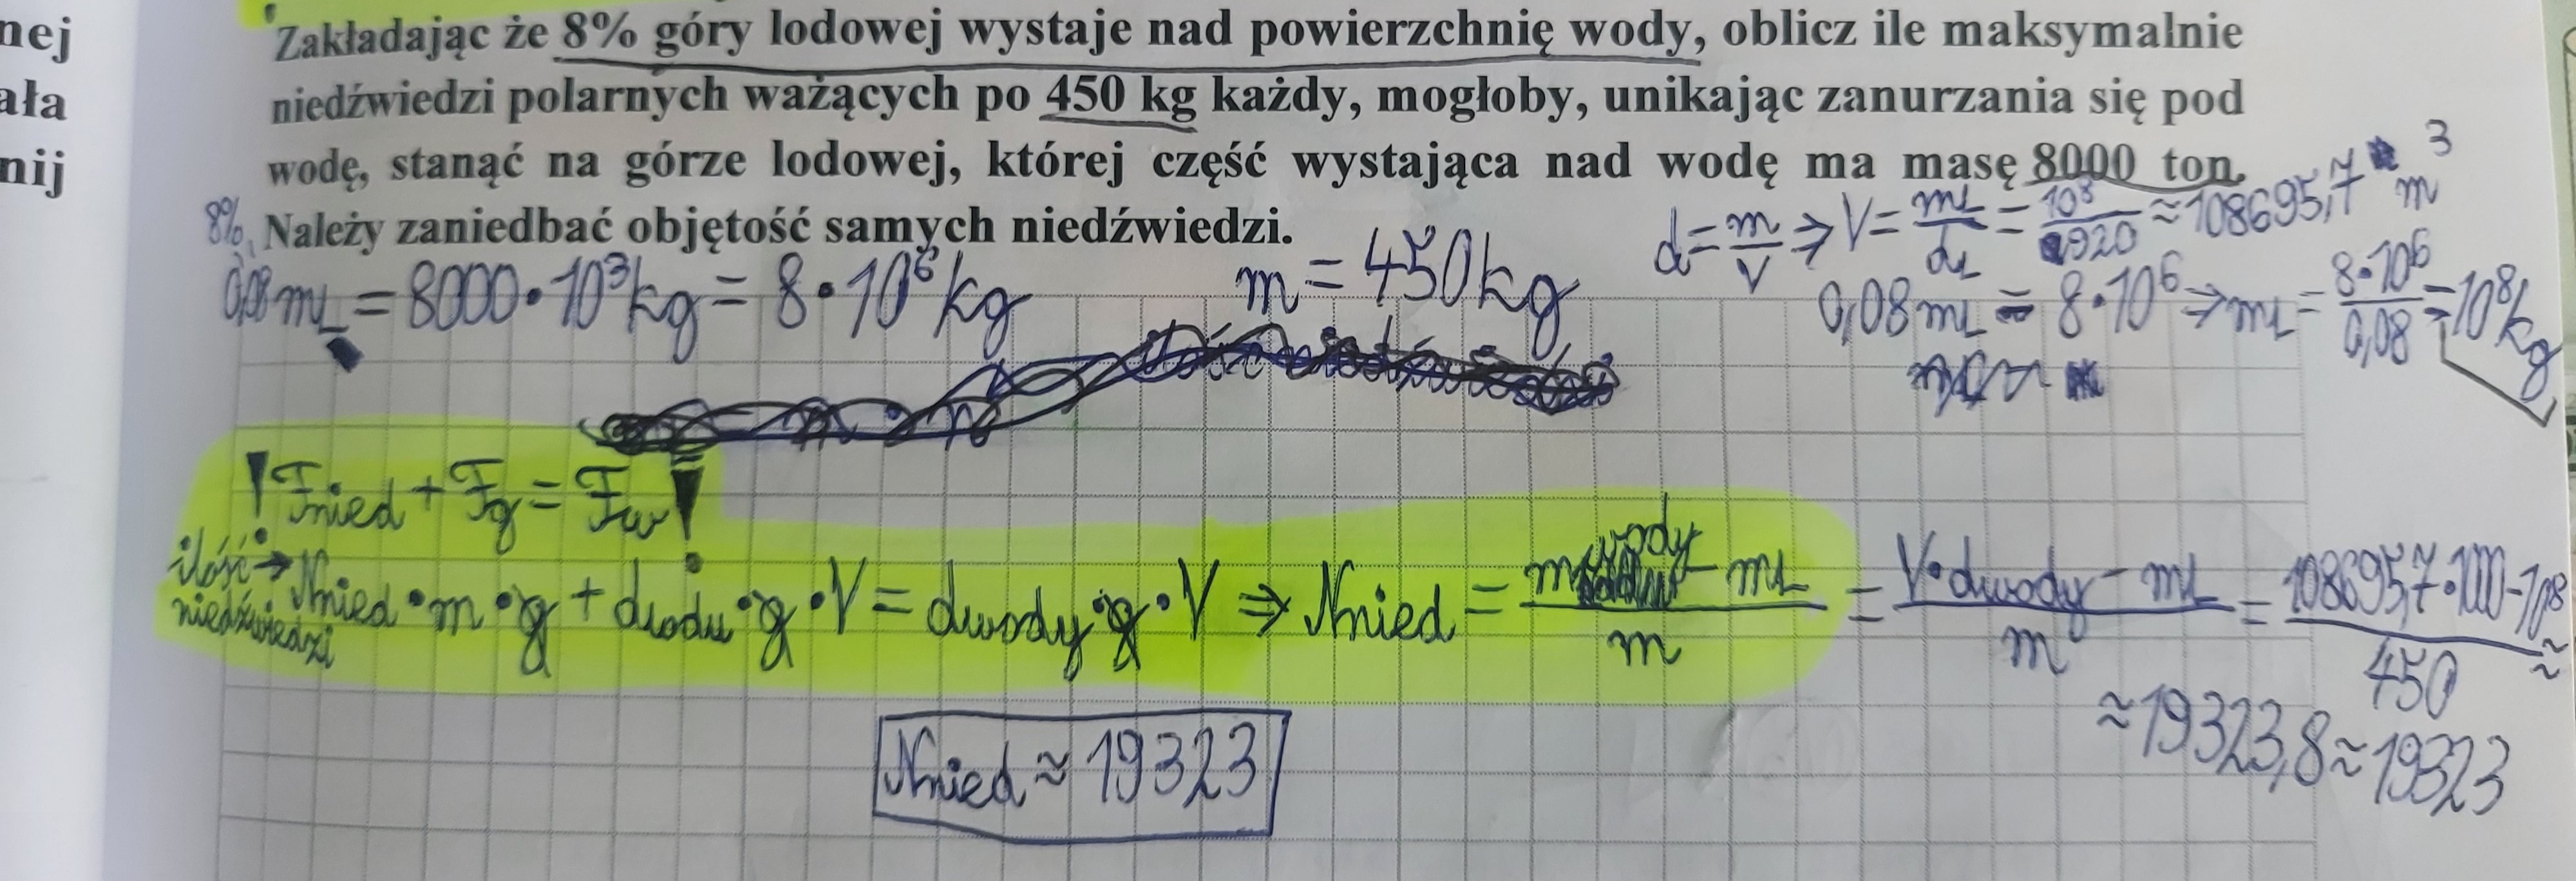 nej
ała
nij
Zakładając że 8% góry lodowej wystaje nad powierzchnię wody, oblicz ile maksymalnie
niedźwiedzi polarnych ważących po 450 kg każdy, mogłoby, unikając zanurzania się pod
wodę, stanąć na górze lodowej, której część wystająca nad wodę ma masę 8000 ton.
8% Należy zaniedbać objętość samych niedźwiedzi.
d = m/V ⇒ V = mL/dL = 10⁸/920 ≈ 108695,7 m³
0,08 mL = 8000 • 10³ kg = 8 • 10⁶ kg
m = 450 kg
0,08 mL = 8 • 10⁶ ⇒ mL = 8•10⁶/0,08 = 10⁸ kg
! Fnied + Fg = Fw !
ilość niedźwiedzi → Nnied • m • g + dlodu • g • V = dwody • g • V ⇒ Nnied = (mwody - mL)/m = (V • dwody - mL)/m = (108695,7 • 1000 - 10⁸)/450 ≈
≈ 19323,8 ≈ 19323
Nnied ≈ 19323